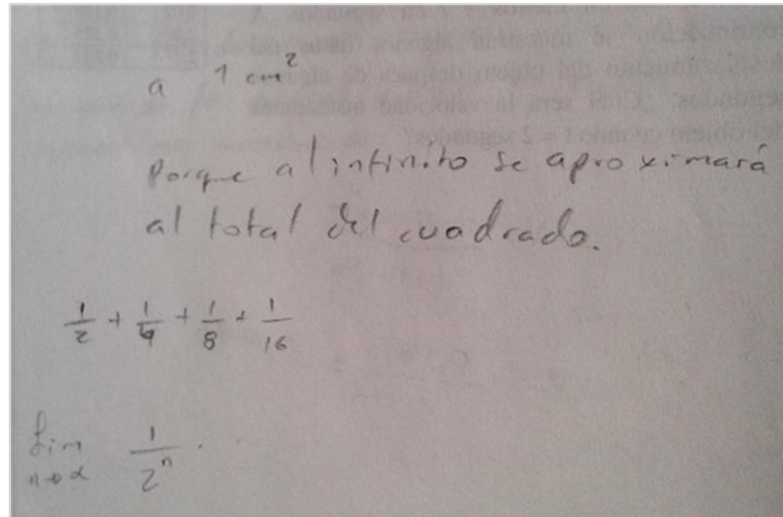 a 1 cm²
Porque al infinito se aproximará
al total del cuadrado.
1/2 + 1/4 + 1/8 + 1/16
Lim n→∞ 1/2ⁿ.